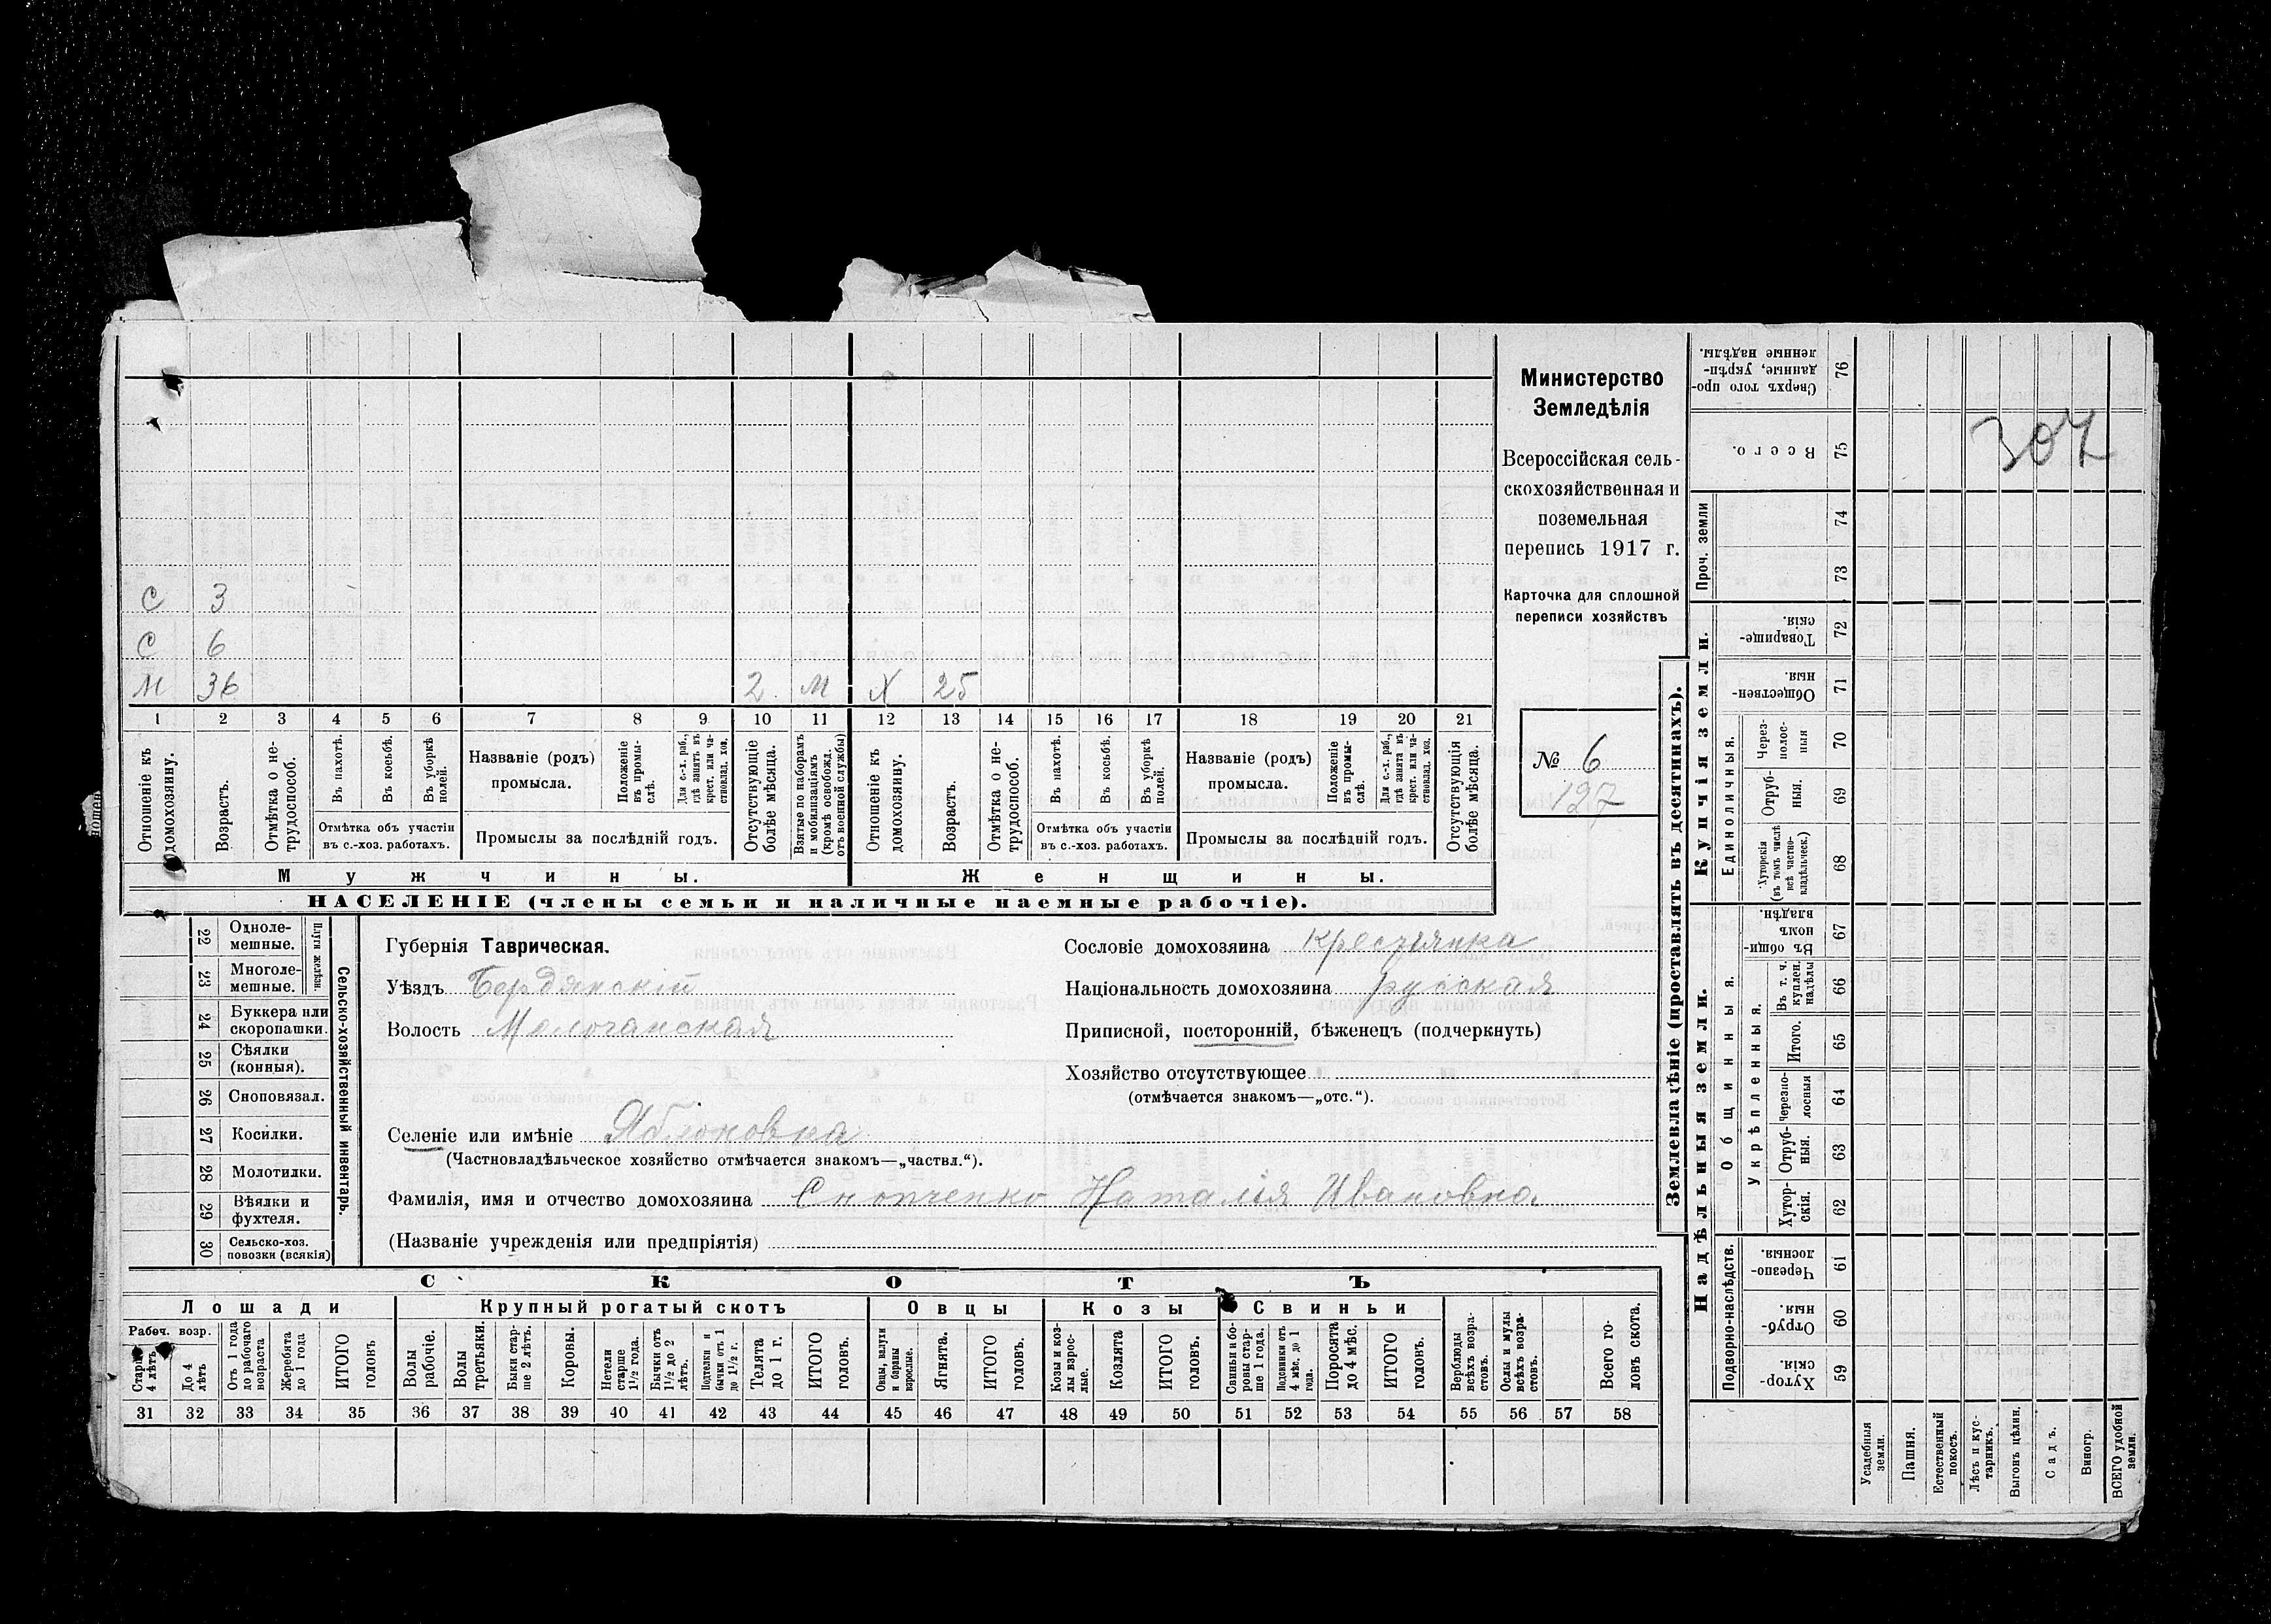 Министерство
Земледѣлія
Всероссійская сель-
скохозяйственная и
поземельная
перепись 1917 г.
Карточка для сплошной
переписи хозяйствъ
№ 6
127
307
С 3
С 6
М 36 2 М Х 25
1 2 3 4 5 6 7 8 9 10 11 12 13 14 15 16 17 18 19 20 21
Отношеніе къ домохозяину.
Возрастъ.
Отмѣтка о не-трудоспособ.
Въ пахотѣ.
Въ косьбѣ.
Въ уборкѣ полей.
Отмѣтка объ участіи
въ с.-хоз. работахъ.
Названіе (родъ)
промысла.
Положеніе въ промы-слѣ.
Для с.-х. раб., гдѣ занятъ въ крест. или ча-стновлад. хоз.
Промыслы за послѣдній годъ.
Отсутствующіе болѣе мѣсяца.
Взятые по наборамъ и мобилизаціямъ (кромѣ освобожд. отъ военной службы)
Отношеніе къ домохозяину.
Возрастъ.
Отмѣтка о не-трудоспособ.
Въ пахотѣ.
Въ косьбѣ.
Въ уборкѣ полей.
Отмѣтка объ участіи
въ с.-хоз. работахъ.
Названіе (родъ)
промысла.
Положеніе въ промы-слѣ.
Для с.-х. раб., гдѣ занята въ крест. или ча-стновлад. хоз.
Промыслы за послѣдній годъ.
Отсутствующія болѣе мѣсяца.
Мужчины. Женщины.
НАСЕЛЕНІЕ (члены семьи и наличные наемные рабочіе).
22 Одноле-мешные.
23 Многоле-мешные.
Плуги желѣзн.
24 Буккера или скоропашки.
25 Сѣялки (конныя).
26 Сноповязал.
27 Косилки.
28 Молотилки.
29 Вѣялки и фухтеля.
30 Сельско-хоз. повозки (всякія)
Сельско-хозяйственный инвентарь.
Губернія Таврическая.
Уѣздъ Бердянскій
Волость Молочанская
Сословіе домохозяина Крестьянка
Національность домохозяина русская
Приписной, посторонній, бѣженецъ (подчеркнуть)
Хозяйство отсутствующее
(отмѣчается знакомъ—„отс.“).
Селеніе или имѣніе Яблоновка
(Частновладѣльческое хозяйство отмѣчается знакомъ—„частвл.“).
Фамилія, имя и отчество домохозяина Снопченко Наталія Ивановна.
(Названіе учрежденія или предпріятія)
СКОТЪ
Лошади Крупный рогатый скотъ Овцы Козы Свиньи
Рабоч. возр.
Старше 4 лѣтъ
До 4 лѣтъ
Отъ 1 года до рабочаго возраста
Жеребята до 1 года
ИТОГО головъ
Волы рабочіе.
Волы третьяки.
Быки стар-ше 2 лѣтъ.
Коровы.
Нетели старше 1½ года.
Бычки отъ 1½ до 2 лѣтъ.
Подтелки и бычки отъ 1 до 1½ г.
Телята до 1 г.
ИТОГО головъ.
Овцы, валухи и бараны взрослые.
Ягнята.
ИТОГО головъ.
Козы и коз-лы взрос-лые.
Козлята
ИТОГО головъ.
Свиньи и бо-ровы стар-ше 1 года.
Подсвинки отъ 4 мѣс. до 1 года.
Поросята до 4 мѣс.
ИТОГО головъ.
Верблюды всѣхъ возра-стовъ.
Ослы и мулы всѣхъ возра-стовъ.
Всего го-ловъ скота.
31 32 33 34 35 36 37 38 39 40 41 42 43 44 45 46 47 48 49 50 51 52 53 54 55 56 57 58
Землевладѣніе (проставлять въ десятинахъ).
Надѣльныя земли.
Купчія земли.
Сверхъ того про-данные, укрѣп-ленные надѣлы. 76
Всего. 75
Проч. земли 74
73
Товарище-скія. 72
Обществен-ныя. 71
Единоличныя.
Через-полос-ныя 70
Отруб-ныя. 69
Хуторскія (въ томъ числѣ всѣ частно-владѣльческ.) 68
Общинныя.
Въ общи-номъ владѣн. 67
Укрѣпленныя.
Въ т. ч. куплен. надѣлы 66
Итого. 65
Черезпо-лосныя 64
Отруб-ныя. 63
Хутор-скія. 62
Подворно-наслѣдств.
Черезпо-лосныя. 61
Отруб-ныя. 60
Хутор-скія. 59
Усадебныя земли.
Пашня.
Естественный покосъ.
Лѣсъ и кус-тарникъ.
Выгонъ цѣлин.
Садъ.
Виногр.
ВСЕГО удобной земли.